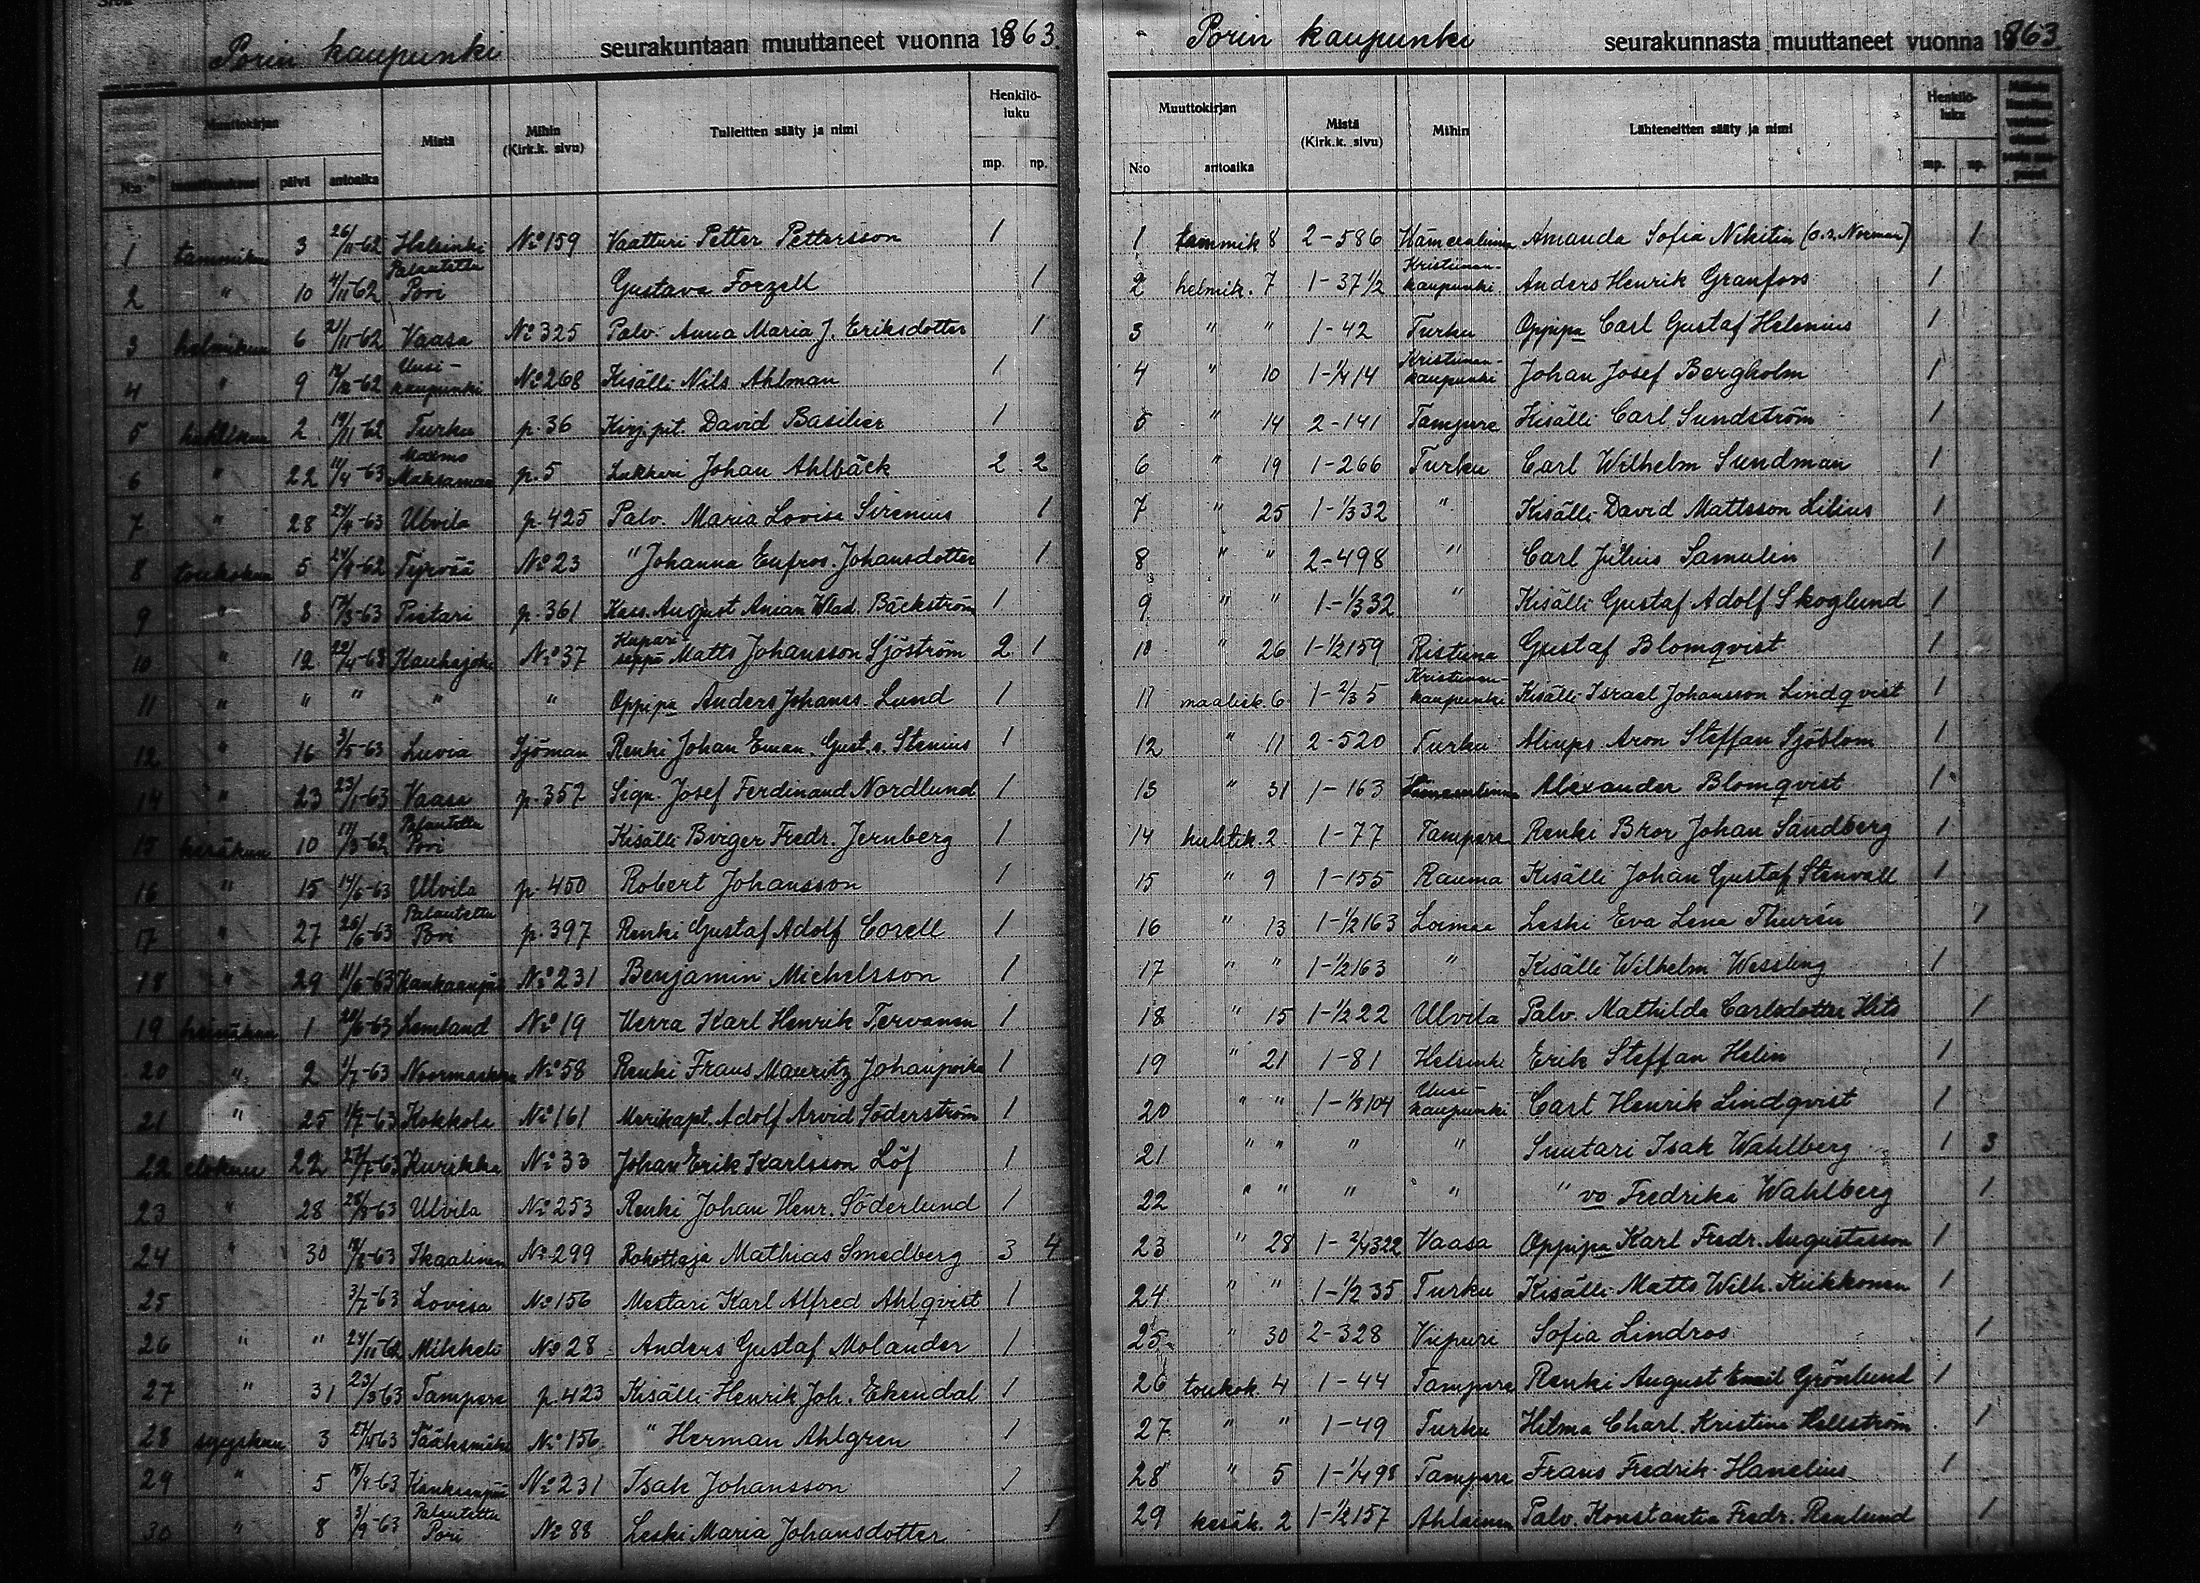 Porin kaupunki seurakuntaan muuttaneet vuonna 1863.
N:o Muuttokirjan päivä antoaika Mistä Mihin (Kirk.k. sivu) Tulleitten sääty ja nimi Henkilöluku mp. np.
1 tammikuu 3 26/11-62 Helsinki No 159 Vaatturi Petter Pettersson 1
2 " 10 4/11-62 Palautettu Pori Gustava Forzell 1
3 helmikuu 6 21/11-62 Vaasa No 325 Palv. Anna Maria J. Eriksdotter 1
4 " 9 -62 Uusi-kaupunki No 268 Kisälli Nils Ahlman 1
5 huhtikuu 2 19/11-62 Turku p. 36 Kirj.pit. David Basilier 1
6 " 22 14/4-63 Maxmo Maksamaa p. 5 Lukkari Johan Ahlbäck 2 2
7 " 28 -63 Ulvila p. 425 Palv. Maria Lovisa Sirenius 1
8 toukokuu 5 -62 Tyrvää No 23 " Johanna Eufros. Johansdotter 1
9 " 8 -63 p. 361 Kass. August Anian Wlad. Bäckström 1
10 " 12 20/4-63 Kauhajoki No 37 Kupari-seppä Matts Johansson Sjöström 2 1
11 " " " " " Oppipa Anders Johanss. Lund 1
12 " 16 3/5-63 Luvia Sjöman Renki Johan Eman. Gust.s. Stenius 1
14 " 23 23/1-63 Vaasa p. 357 Sign. Josef Ferdinand Nordlund 1
15 kesäkuu 10 11/3-62 Palautettu Pori Kisälli Birger Fredr. Jernberg 1
16 " 15 14/6-63 Ulvila p. 450 Robert Johansson 1
17 " 27 26/6-63 Palautettu Pori p. 397 Renki Gustaf Adolf Corell 1
18 " 29 11/6-63 Kankaanpää No 231 Benjamin Michelsson 1
19 heinäkuu 1 20/6-63 Lemland No 19 Herra Karl Henrik Tervonen 1
20 " 2 1/7-63 Noormarkku No 58 Renki Frans Mauritz 1
21 " 25 -63 Kokkola No 161 Merikapt. Adolf Arvid Söderström 1
22 elokuu 22 27/7-63 Kurikka No 33 Johan Erik Karlsson Löf 1
23 " 28 28/8-63 Ulvila No 253 Renki Johan Henr. Söderlund 1
24 " 30 -63 Ikaalinen No 299 Rokottaja Mathias Smedberg 3 4
25 3/7-63 Lovisa No 156 Mestari Karl Alfred Ahlqvist 1
26 " " 24/11-62 Mikkeli No 28 Anders Gustaf Molander 1
27 " 31 23/3-63 Tampere p. 423 Kisälli Henrik Joh. Ekendal 1
28 syyskuu 3 -63 Sääksmäki No 156 " Herman Ahlgren 1
29 " 5 -63 Kankaanpää No 231 Isak Johansson 1
30 " 8 3/9-63 Palautettu Pori No 88 Leski Maria Johansdotter 1
Porin kaupunki seurakunnasta muuttaneet vuonna 1863
Muuttokirjan N:o antoaika Mistä (Kirk.k. sivu) Mihin Lähteneitten sääty ja nimi Henkilöluku mp. np.
1 tammik 8 2-586 Hämeenlinna Amanda Sofia Nikitin (o.s. Norman) 1
2 helmik. 7 1-37 1/2 Kristiinan-kaupunki Anders Henrik Granfors 1
3 " " 1-42 Turku Oppipa Carl Gustaf Helenius 1
4 " 10 1-1/4 14 Kristiinan-kaupunki Johan Josef Bergholm 1
5 " 14 2-141 Tampere Kisälli Carl Sundström 1
6 " 19 1-266 Turku Carl Wilhelm Sundman 1
7 " 25 1-1/3 32 " Kisälli David Mattsson Lilius 1
8 " " 2-498 " Carl Julius Samulin 1
9 " " 1-1/3 32 " Kisälli Gustaf Adolf Skoglund 1
10 " 26 1-1/2 159 Ristiina Gustaf Blomqvist 1
11 maalisk. 6 1-2/3 5 Kristiinan-kaupunki Kisälli Israel Johansson Lindqvist 1
12 " 11 2-520 Turku Aliups Aron Steffan Sjöblom 1
13 " 31 1-163 Hämeenlinna Alexander Blomqvist 1
14 huhtik. 2 1-77 Tampere Renki Bror Johan Sandberg 1
15 " 9 1-155 Rauma Kisälli Johan Gustaf Stenvall 1
16 " 13 1-1/2 163 Loimaa Leski Eva Lena Thurén 1
17 " " 1-1/2 163 " Kisälli Wilhelm Wessling 1
18 " 15 1-1/2 22 Ulvila Palv. Mathilda Carlsdotter Hits 1
19 " 21 1-81 Helsinki Erik Steffan Helin 1
20 " " 1-1/8 104 Uusi-kaupunki Carl Henrik Lindqvist 1
21 " " " " Suutari Isak Wahlberg 1 3
22 " " " " " vo Fredrika Wahlberg 1
23 " 28 1-3/4 322 Vaasa Oppipa Karl Fredr. Augustsson 1
24 " " 1-1/2 35 Turku Kisälli Matts Wilh. Kiikkonen 1
25 " 30 2-328 Viipuri Sofia Lindros 1
26 toukok. 4 1-44 Tampere Renki August Emil Grönlund 1
27 " " 1-49 Turku Hilma Charl. Kristina Hellström 1
28 " 5 1-1/4 98 Tampere Frans Fredrik Hanelius 1
29 kesäk. 2 1-1/2 157 Ahlainen Palv. Konstantia Fredr. Renlund 1